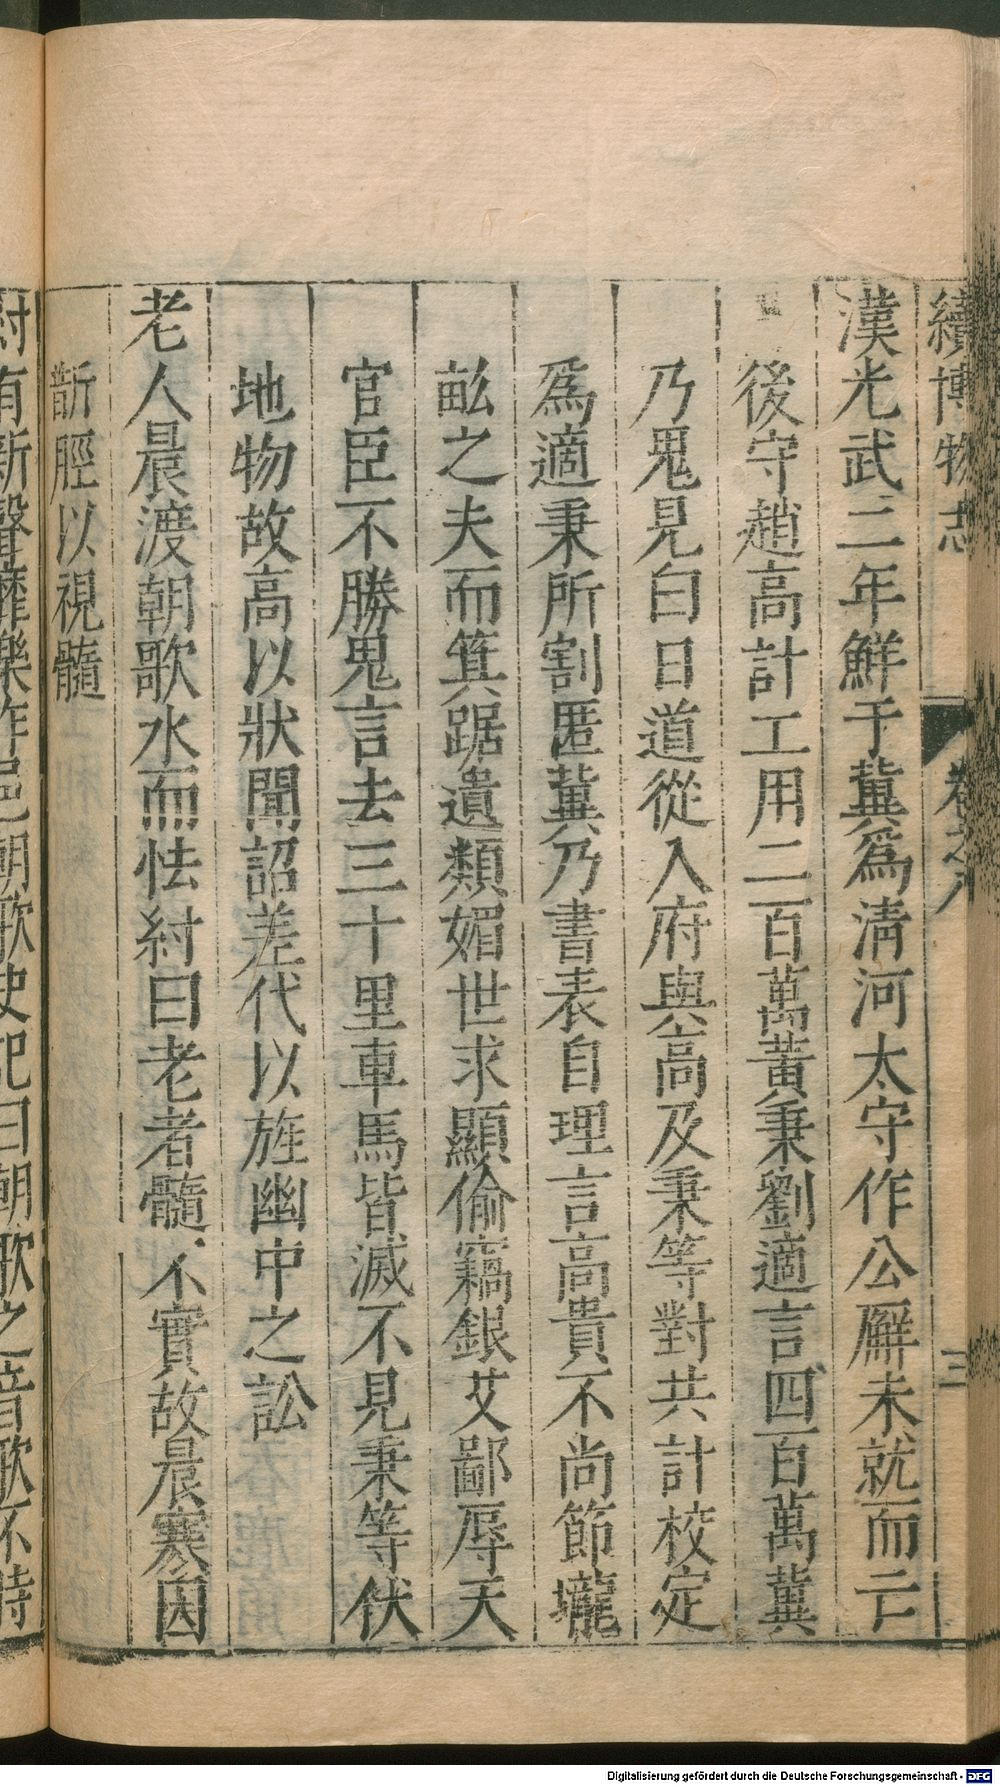 續博物志 卷之八 三
漢光武二年鮮于冀爲淸河太守作公廨未就而亡
後守趙高計工用二百萬黃秉劉適言四百萬冀
乃鬼見白日道從入府與高及秉等對共計校定
爲適秉所割匿冀乃書表自理言高貴不尚節壠
畝之夫而箕踞遺類媚世求顯偷竊銀艾鄙辱天
官臣不勝鬼言去三十里車馬皆滅不見秉等伏
地物故高以狀聞詔差代以旌幽中之訟
老人晨渡朝歌水而怯紂曰老者髓不實故晨寒因
斮脛以視髓
紂有新聲靡樂作邑朝歌史記曰朝歌之音歌不時
Digitalisierung gefördert durch die Deutsche Forschungsgemeinschaft - DFG